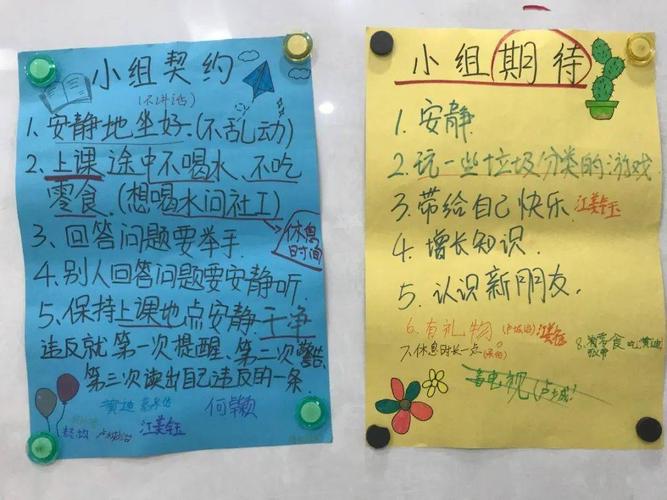 小组契约
(不讲话)
1. 安静地坐好.(不乱动)
2. 上课途中不喝水、不吃
零食.(想喝水问社工)
休息
时间
3、回答问题要举手.
4. 别人回答问题要安静听.
5、保持上课地点安静.干净
违反就第一次提醒、第二次警告
第三次读出自己违反的一条.
何颖
小组期待
1. 安静
2. 玩一些垃圾分类的游戏
3. 带给自己快乐.
4. 增长知识.
5、认识新朋友.
6. 有礼物
7. 休息时长一点
8. 零食
看电视